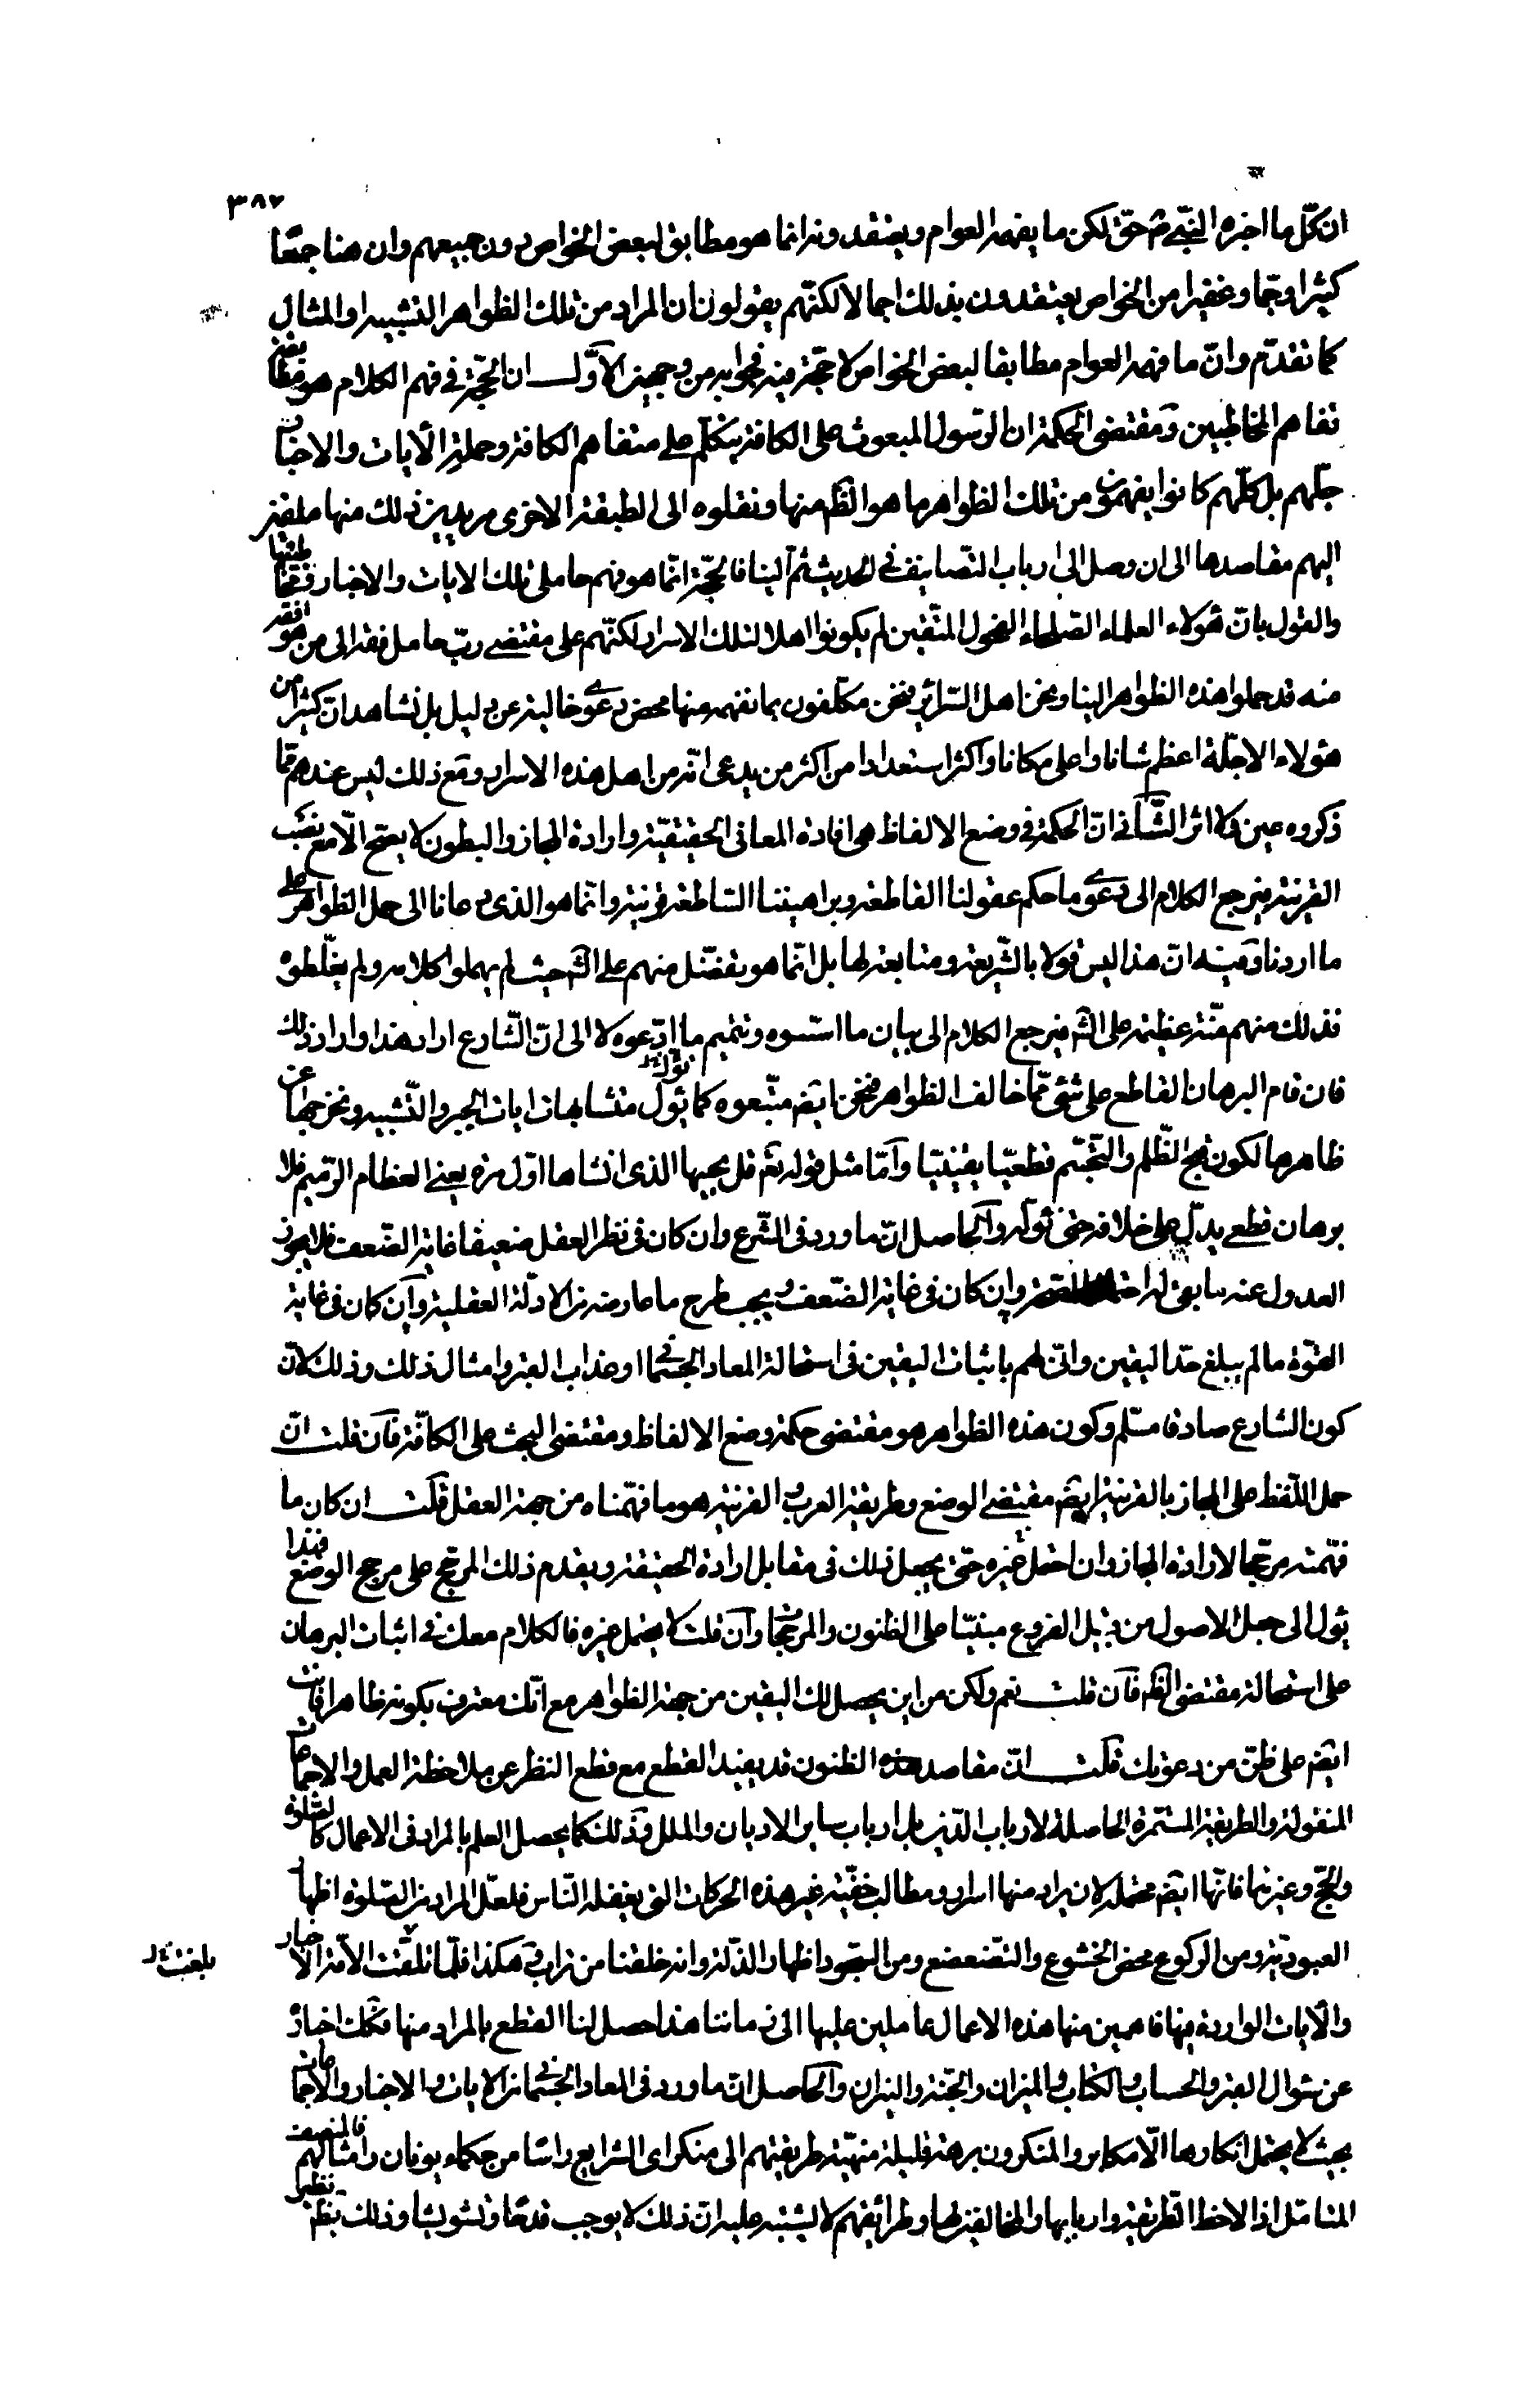 ٣٨٧
ان كلّ ما اخبره النّبي ص حقّ لكن ما يفهمه العوام ويعتقدونه انما هو مطابق لبعض الخواص دون جميعهم وان هنا جمعًا
كثيرا وجمّا وغفيرا من الخواص يعتقدون بذلك اجمالا لكنّهم يقولون ان المراد من تلك الظواهر التشبيه والمثال
كما تقدّم وانّ ما فهمه العوام مطابقا لبعض الخواص لا حجّة فيه فجوابه من وجهين الاوّل ان الحجّة في فهم الكلام هو
تفاهم المخاطبين ومقتضى الحكمة ان الرّسول المبعوث على الكافة يتكلّم على متفاهم الكافة وحملة الآيات والاخبار
جلّهم بل كلّهم كانوا يفهمون من تلك الظواهر ما هو الظّ منها ونقلوه الى الطبقة الاخرى مريدين ذلك منها ملقين
اليهم مقاصدها الى ان وصل الى ارباب التّصانيف في الحديث ثمّ الينا فالحجّة انّما هو فهم حاملى تلك الايات والاخبار
والقول بانّ هؤلاء العلماء الصّلحاء الفحول المتّقين لم يكونوا اهلا لتلك الاسرار لكنّهم على مقتضى ربّ حامل فقه الى من هو افقه
منه قد حملوا هذه الظواهر الينا ونحن اهل السّرائر فنحن مكلّفون بما نفهمه منها محض دعوى خالية عن دليل بل نشاهد انّ كثيرا من
هؤلاء الاجلّة اعظم شانا واعلى مكانا واكثر استعدادا من اكثر من يدعى انّه من اهل هذه الاسرار ومع ذلك ليس عندهم ممّا
ذكروه عين ولا اثر الثّاني انّ الحكمة في وضع الالفاظ هى افادة المعانى الحقيقيّة وارادة المجاز والبطون لا يصحّ الّا مع نصب
القرينة فيرجع الكلام الى دعوى ما حكم عقولنا القاطعة وبراهيننا السّاطعة قرينة وانّما هو الذى دعانا الى حمل الظواهر على
ما اردنا وفيه انّ هذا ليس قولا بالشّريعة ومتابعة لها بل انّما هو تفضّل منهم على الشّ حيث لم يهملوا كلامه ولم يغلّطوه
فذلك منهم منّة عظيمة على الشّ فيرجع الكلام الى بيان ما اسّسوه وتتميم ما ادّعوه لا الى انّ الشّارع اراد هذا واراد ذلك
فان قام البرهان القاطع على شئ ممّا خالف الظواهر فنحن ايضم متّبعوه كما نؤوّل متشابهات ايات الجبر والتّشبيه ونخرجها عن
ظاهرها لكون قبح الظّلم والتّجسّم قطعيّا يقينيّا وامّا مثل قوله تعم قل يحييها الذى انشاها اوّل مرة يعنى العظام الرّميم فلا
برهان قطعى يدلّ على خلافه حتى نؤوّله والحاصل انّ ما ورد فى الشّرع وان كان فى نظر العقل ضعيفا غاية الضّعف فلا يجوز
العدول عنه ما بقى له وان كان فى غاية الضّعف ويجب طرح ما عارضه من الادلّة العقلية وان كان فى غاية
القوّة ما لم يبلغ حدّ اليقين وانّى لهم باثبات اليقين فى استحالة المعاد الجسماني او عذاب القبر وامثال ذلك وذلك لانّ
كون الشارع صادقا مسلّم وكون هذه الظواهر هو مقتضى حكمة وضع الالفاظ ومقتضى البعث على الكافّة فان قلت انّ
حمل اللّفظ على المجاز بالقرينة ايضم مقتضى الوضع وطريقة العرب والقرينة هو ما فهمناه من جهة العقل قلت ان كان ما
فهمته مرجّحا لارادة المجاز وان احتمل غيره حتى يجعل ذلك فى مقابل ارادة الحقيقة ويقدم ذلك المرجّح على مرجح الوضع فهذا
يؤل الى جعل الاصول من قبيل الفروع مبنيّا على الظنون والمرجّحات وان قلت لا يحتمل غيره فالكلام معك فى اثبات البرهان
على استحالة مقتضى الظّم فان قلت نعم ولكن من اين يحصل لك اليقين من جهة الظواهر مع انّك معترف بكونه ظاهرا فانت
ايضم على ظنّ من دعويك قلت انّ مقاصد هذه الظنون قد يفيد القطع مع قطع النظر عن ملاحظة العمل والاجماعات
المنقولة والطريقة المستمرة الحاصلة لارباب الدّين بل ارباب ساير الاديان والملل وذلك كما يحصل العلم بالمراد فى الاعمال كالصّلوة
والحجّ وغيرهما فانّها ايضم محتملة لان يراد منها اسرار ومطالب خفيّة غير هذه الحركات التى يفعله النّاس فلعلّ المراد من الصّلوة اظهار
العبوديّة ومن الركوع محض الخشوع والتّضعضع ومن السّجود اظهار الذّلة وانه خلقنا من تراب وهكذا فلمّا تلقّت الامّة الاخبار
والآيات الواردة فيها فاهمين منها هذه الاعمال عاملين عليها الى زماننا هذا حصل لنا القطع بالمراد منها فكك اخباره
عن سؤال القبر والحساب والكتاب والميزان والجنّة والنيران والحاصل انّ ما ورد فى المعاد الجسمانى من الايات والاخبار والاجماعات
بحيث لا يحتمل انكارها الّا مكابر والمنكرون شرذمة قليلة منتهية طريقتهم الى منكرى الشرايع راسا من حكماء يونان وامثالهم فالمنصف
المتامّل اذا لاحظ الطّريقة واربابها والمخالفة لها وطرائقهم لا يشتبه عليه انّ ذلك لا يوجب قدحًا وتشويشا وذلك